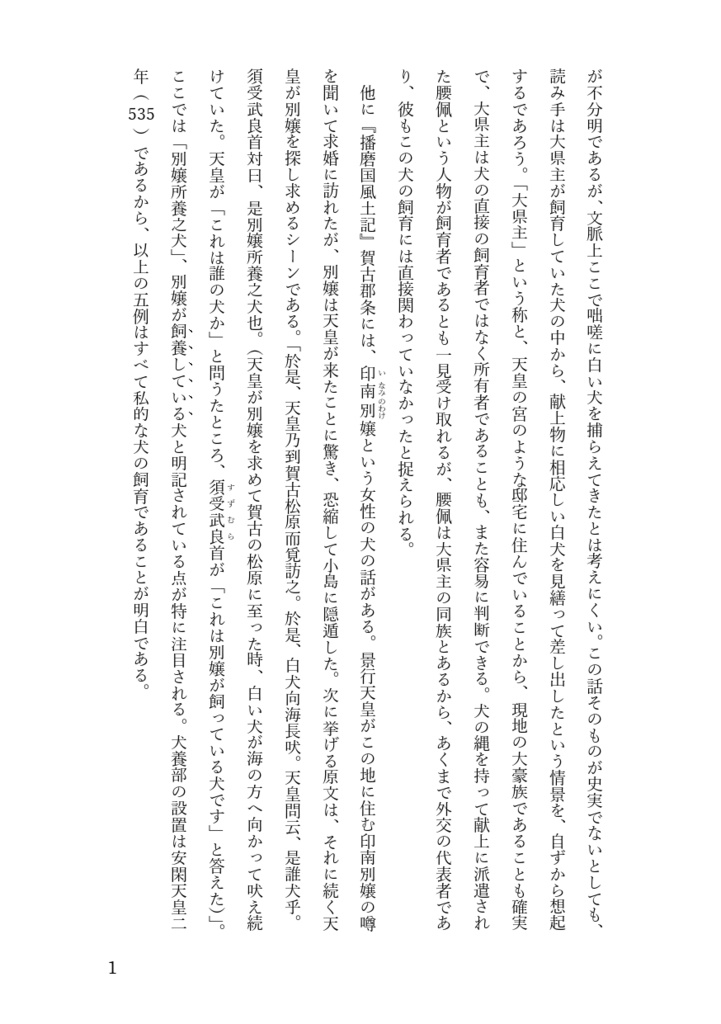 が不分明であるが、文脈上ここで咄嗟に白い犬を捕らえてきたとは考えにくい。この話そのものが史実でないとしても、
読み手は大県主が飼育していた犬の中から、献上物に相応しい白犬を見繕って差し出したという情景を、自ずから想起
するであろう。「大県主」という称と、天皇の宮のような邸宅に住んでいることから、現地の大豪族であることも確実
で、大県主は犬の直接の飼育者ではなく所有者であることも、また容易に判断できる。犬の縄を持って献上に派遣され
た腰佩という人物が飼育者であるとも一見受け取れるが、腰佩は大県主の同族とあるから、あくまで外交の代表者であ
り、彼もこの犬の飼育には直接関わっていなかったと捉えられる。
他に『播磨国風土記』賀古郡条には、印南別嬢という女性の犬の話がある。景行天皇がこの地に住む印南別嬢の噂
を聞いて求婚に訪れたが、別嬢は天皇が来たことに驚き、恐縮して小島に隠遁した。次に挙げる原文は、それに続く天
皇が別嬢を探し求めるシーンである。「於是、天皇乃到賀古松原而覓訪之。於是、白犬向海長吠。天皇問云、是誰犬乎。
須受武良首対曰、是別嬢所養之犬也。（天皇が別嬢を求めて賀古の松原に至った時、白い犬が海の方へ向かって吠え続
けていた。天皇が「これは誰の犬か」と問うたところ、須受武良首が「これは別嬢が飼っている犬です」と答えた）」。
ここでは「別嬢所養之犬」、別嬢が飼養している犬と明記されている点が特に注目される。犬養部の設置は安閑天皇二
年（535）であるから、以上の五例はすべて私的な犬の飼育であることが明白である。
1